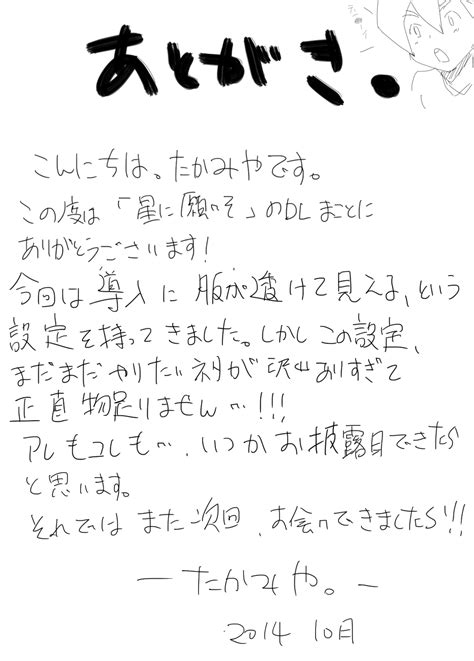 あとがき。
こんにちは。たかみやです。
この度は「星に願いを」のDLまことに
ありがとうございます!
今回は導入に服が透けて見える、という
設定を持ってきました。しかしこの設定、
まだまだやりたいネタが沢山ありすぎて
正直物足りません…!!!
アレもコレも…、いつかお披露目できたら
と思います。
それではまた次回、お会いできましたら!!
ーたかみや。ー
2014 10月